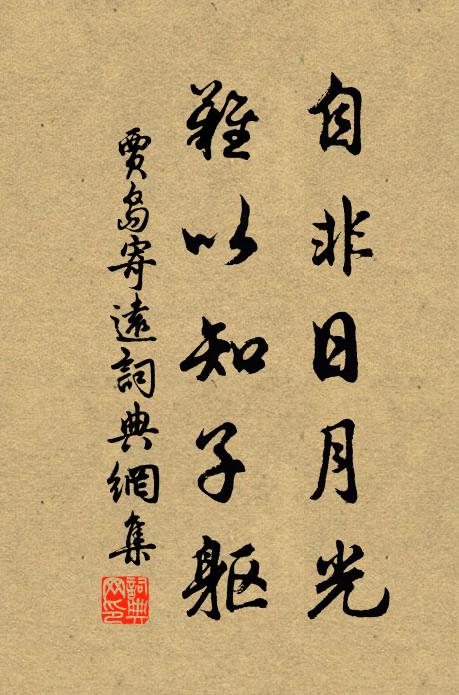 自非日月光
難以知子軀
賈島寄遠詞典網集
詞典
网印